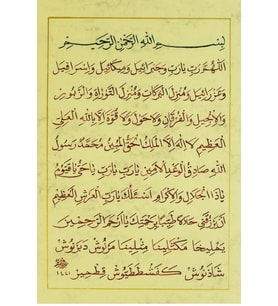 بسم الله الرحمن الرحيم
اللهم رب يارب وجبرائيل وميكائيل واسرافيل
وعزرائيل ومنزل البركات ومنزل التوراة والزبور
والانجيل والفرقان ولا حول ولا قوة الا بالله العلي
العظيم لا اله الا الله الملك الحق المبين محمد رسول
الله صادق الوعد الامين يارب يارب ياحي ياقيوم
ياذا الجلال والاكرام اسئلك يارب العرش العظيم
ان يرزقني حلالا طيبا برحمتك ياارحم الراحمين
يمليخا مكثلينا مثلينا مرنوش دبرنوش
شاذنوش كفشططيوش قطمير ١٤٤١